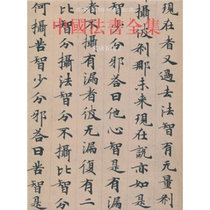 中國法書全集
現在者又過去法智有无量刹
攝彼刹那未來現在説亦如是
分邪荅曰他心智是有漏
者不攝有漏者彼无漏復有二
比智分不攝法智分
何攝苦智少分邪荅曰苦智是